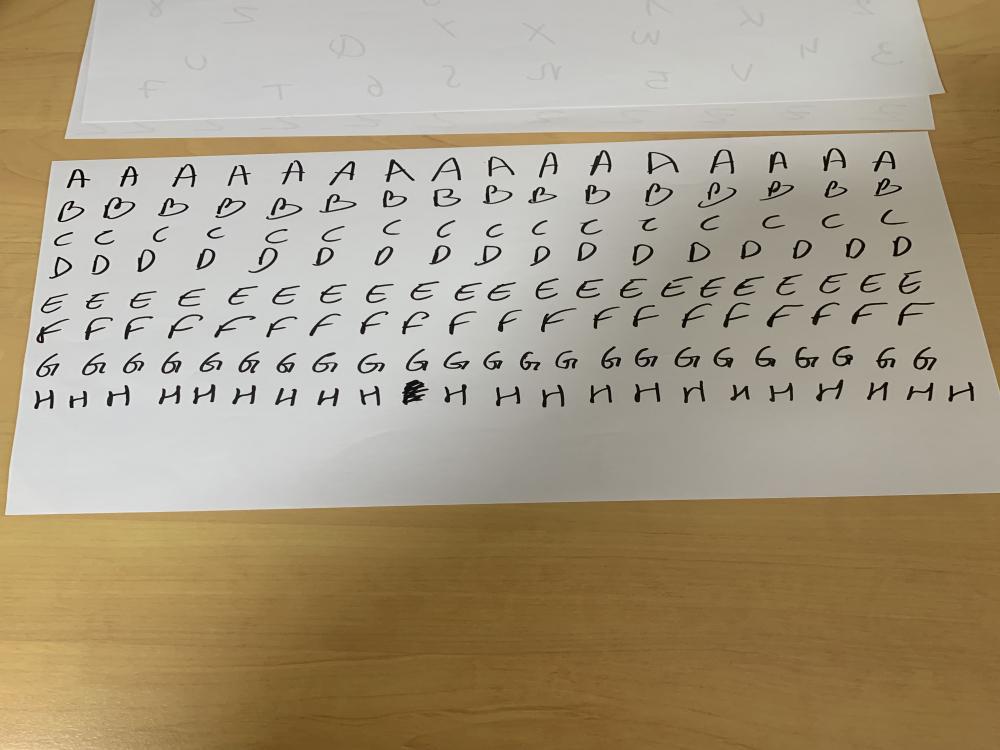 A A A A A A A A A A A A A A A A
B B B B B B B B B B B B B B B B
C C C C C C C C C C C C C C C C
D D D D D D D D D D D D D D D D D
E E E E E E E E E E E E E E E E E E E E E
F F F F F F F F F F F F F F F F F F F F
G G G G G G G G G G G G G G G G G G G G G G G
H H H H H H H H H H H H H H H H H H H H H